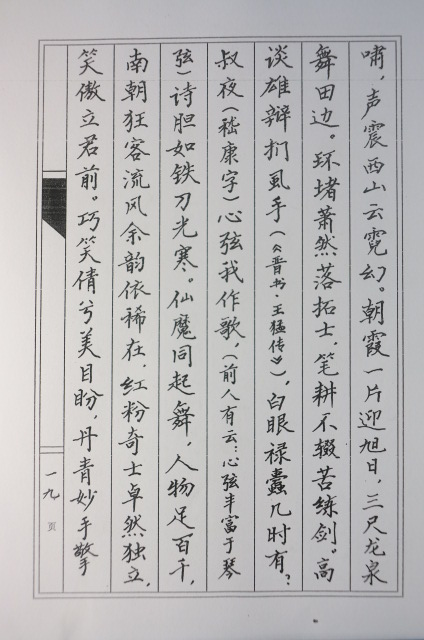 啸，声震西山云霓幻。朝霞一片迎旭日，三尺龙泉
舞田边。环堵萧然落拓士，笔耕不辍苦练剑。高
谈雄辩扪虱手（《晋书·王猛传》），白眼禄蠹几时有？
叔夜（嵇康字）心弦我作歌，（前人有云：心弦丰富于琴
弦）诗胆如铁刀光寒。仙魔同起舞，人物足百千，
南朝狂客流风余韵依稀在，红粉奇士卓然独立，
笑傲立君前。巧笑倩兮美目盼，丹青妙手擎
一九页